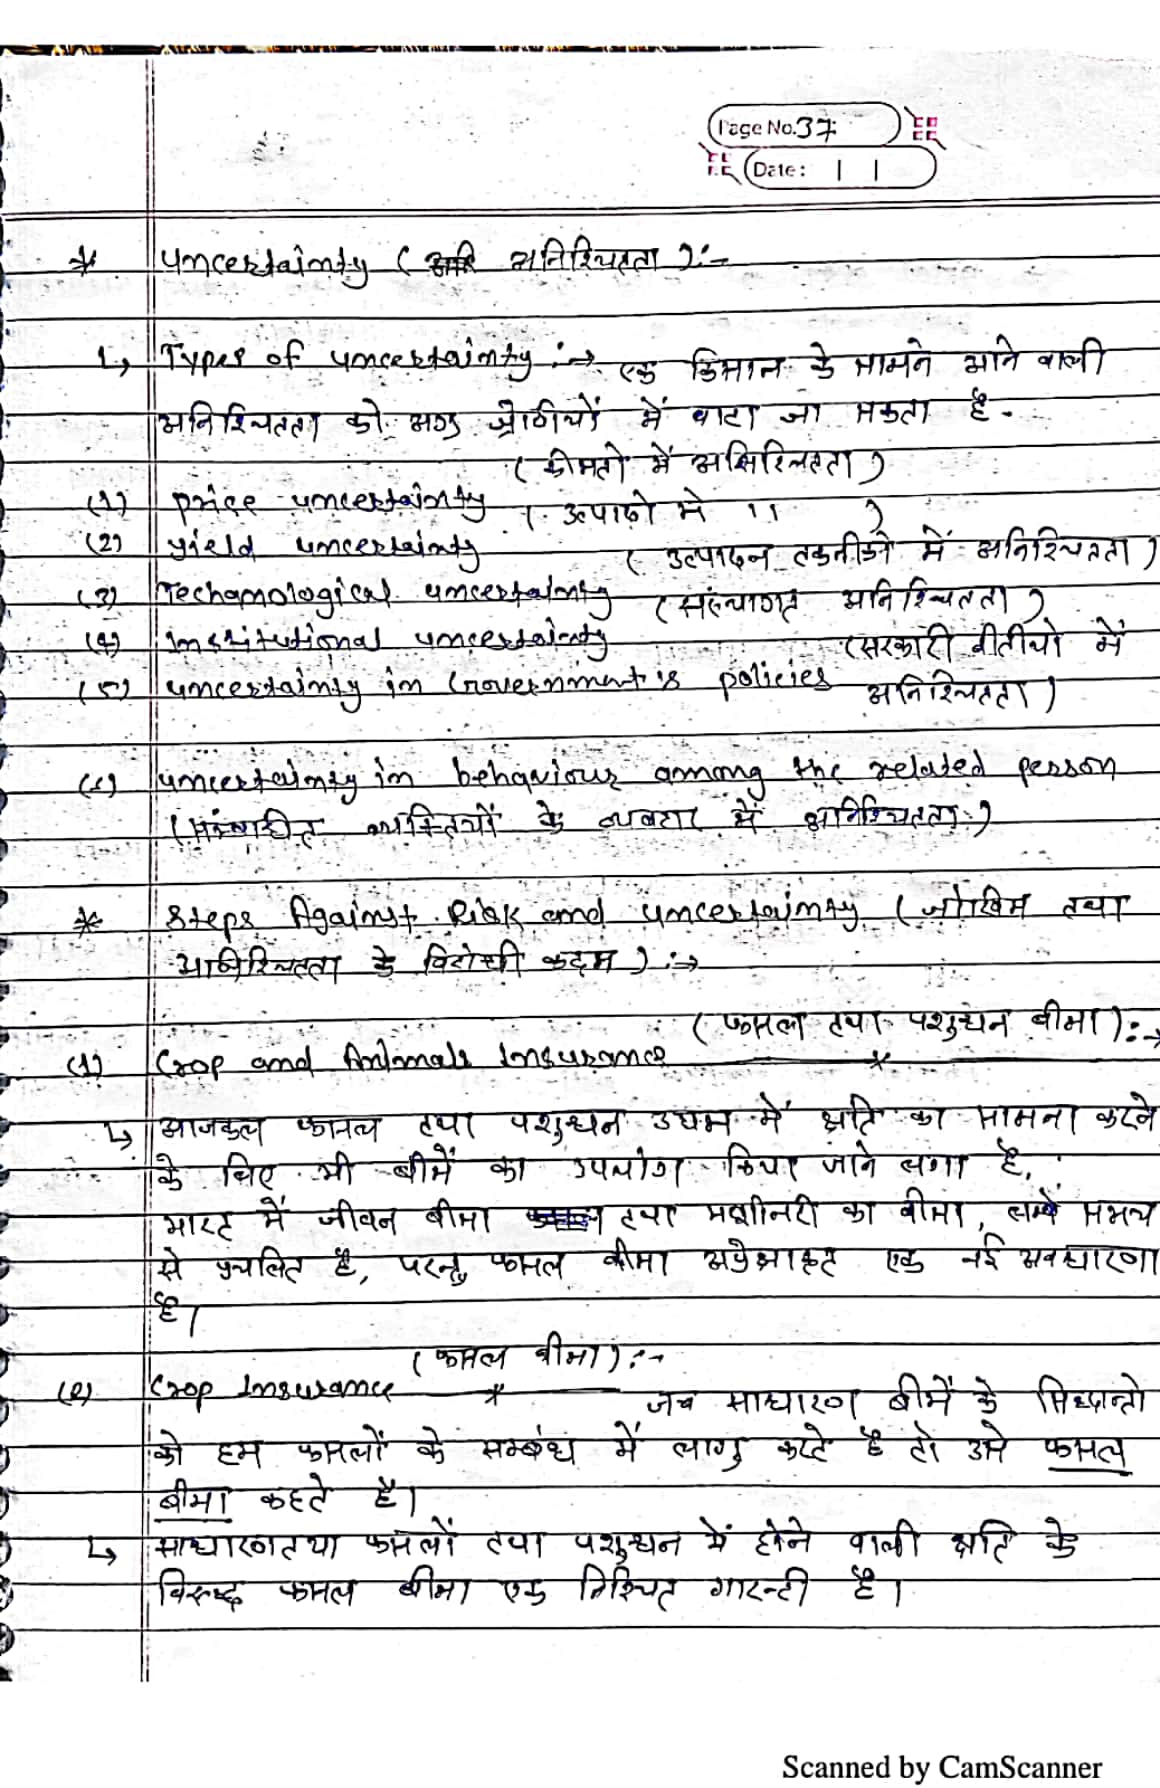 Page No. 37
Date: | |
* Uncertainty ( अनिश्चितता ) :-
↳ Types of uncertainty :→ एक किसान के सामने आने वाली
अनिश्चितता को श्रेणीयों में बाटा जा सकता है -
( कीमतो में )
(1) price uncertainty
( उत्पादो मे 11 )
(2) yield uncertainty
( उत्पादन तकनीको में अनिश्चितता )
(3) Techanological uncertainty
(संस्थागत अनिश्चितता )
(4) Institutional uncertainty
(सरकारी नीतीयो में
(5) uncertainty in Government's policies अनिश्चितता )
uncertainty in behaviour among the related person
( व्यक्तियों के व्यवहार में अनिश्चितता )
* Steps Against Risk and uncertainty ( जोखिम तथा
अनिश्चितता के विरोधी कदम ) :→
( फसल तथा पशुधन बीमा ) :→
(1) Crop and Animals Insurance
↳ आजकल फसल तथा पशुधन उधम में क्षति का सामना करने
के लिए भी बीमें का उपयोग किया जाने लगा है,
भारत में जीवन बीमा तथा मशीनरी का बीमा, लम्बें समय
से प्रचलित है, परन्तु फसल बीमा अपेक्षाकृत एक नई अवधारणा
है।
( फसल बीमा ) :-
(2) Crop Insurance जब साधारण बीमें के सिध्दान्तो
को हम फसलों के सम्बंध में लागु करते है तो उसे फसल
बीमा कहते है।
↳ साधारणतया फसलों तथा पशुधन में होने वाली क्षति के
विरुध्द फसल बीमा एक निश्चित गारन्टी है।
Scanned by CamScanner